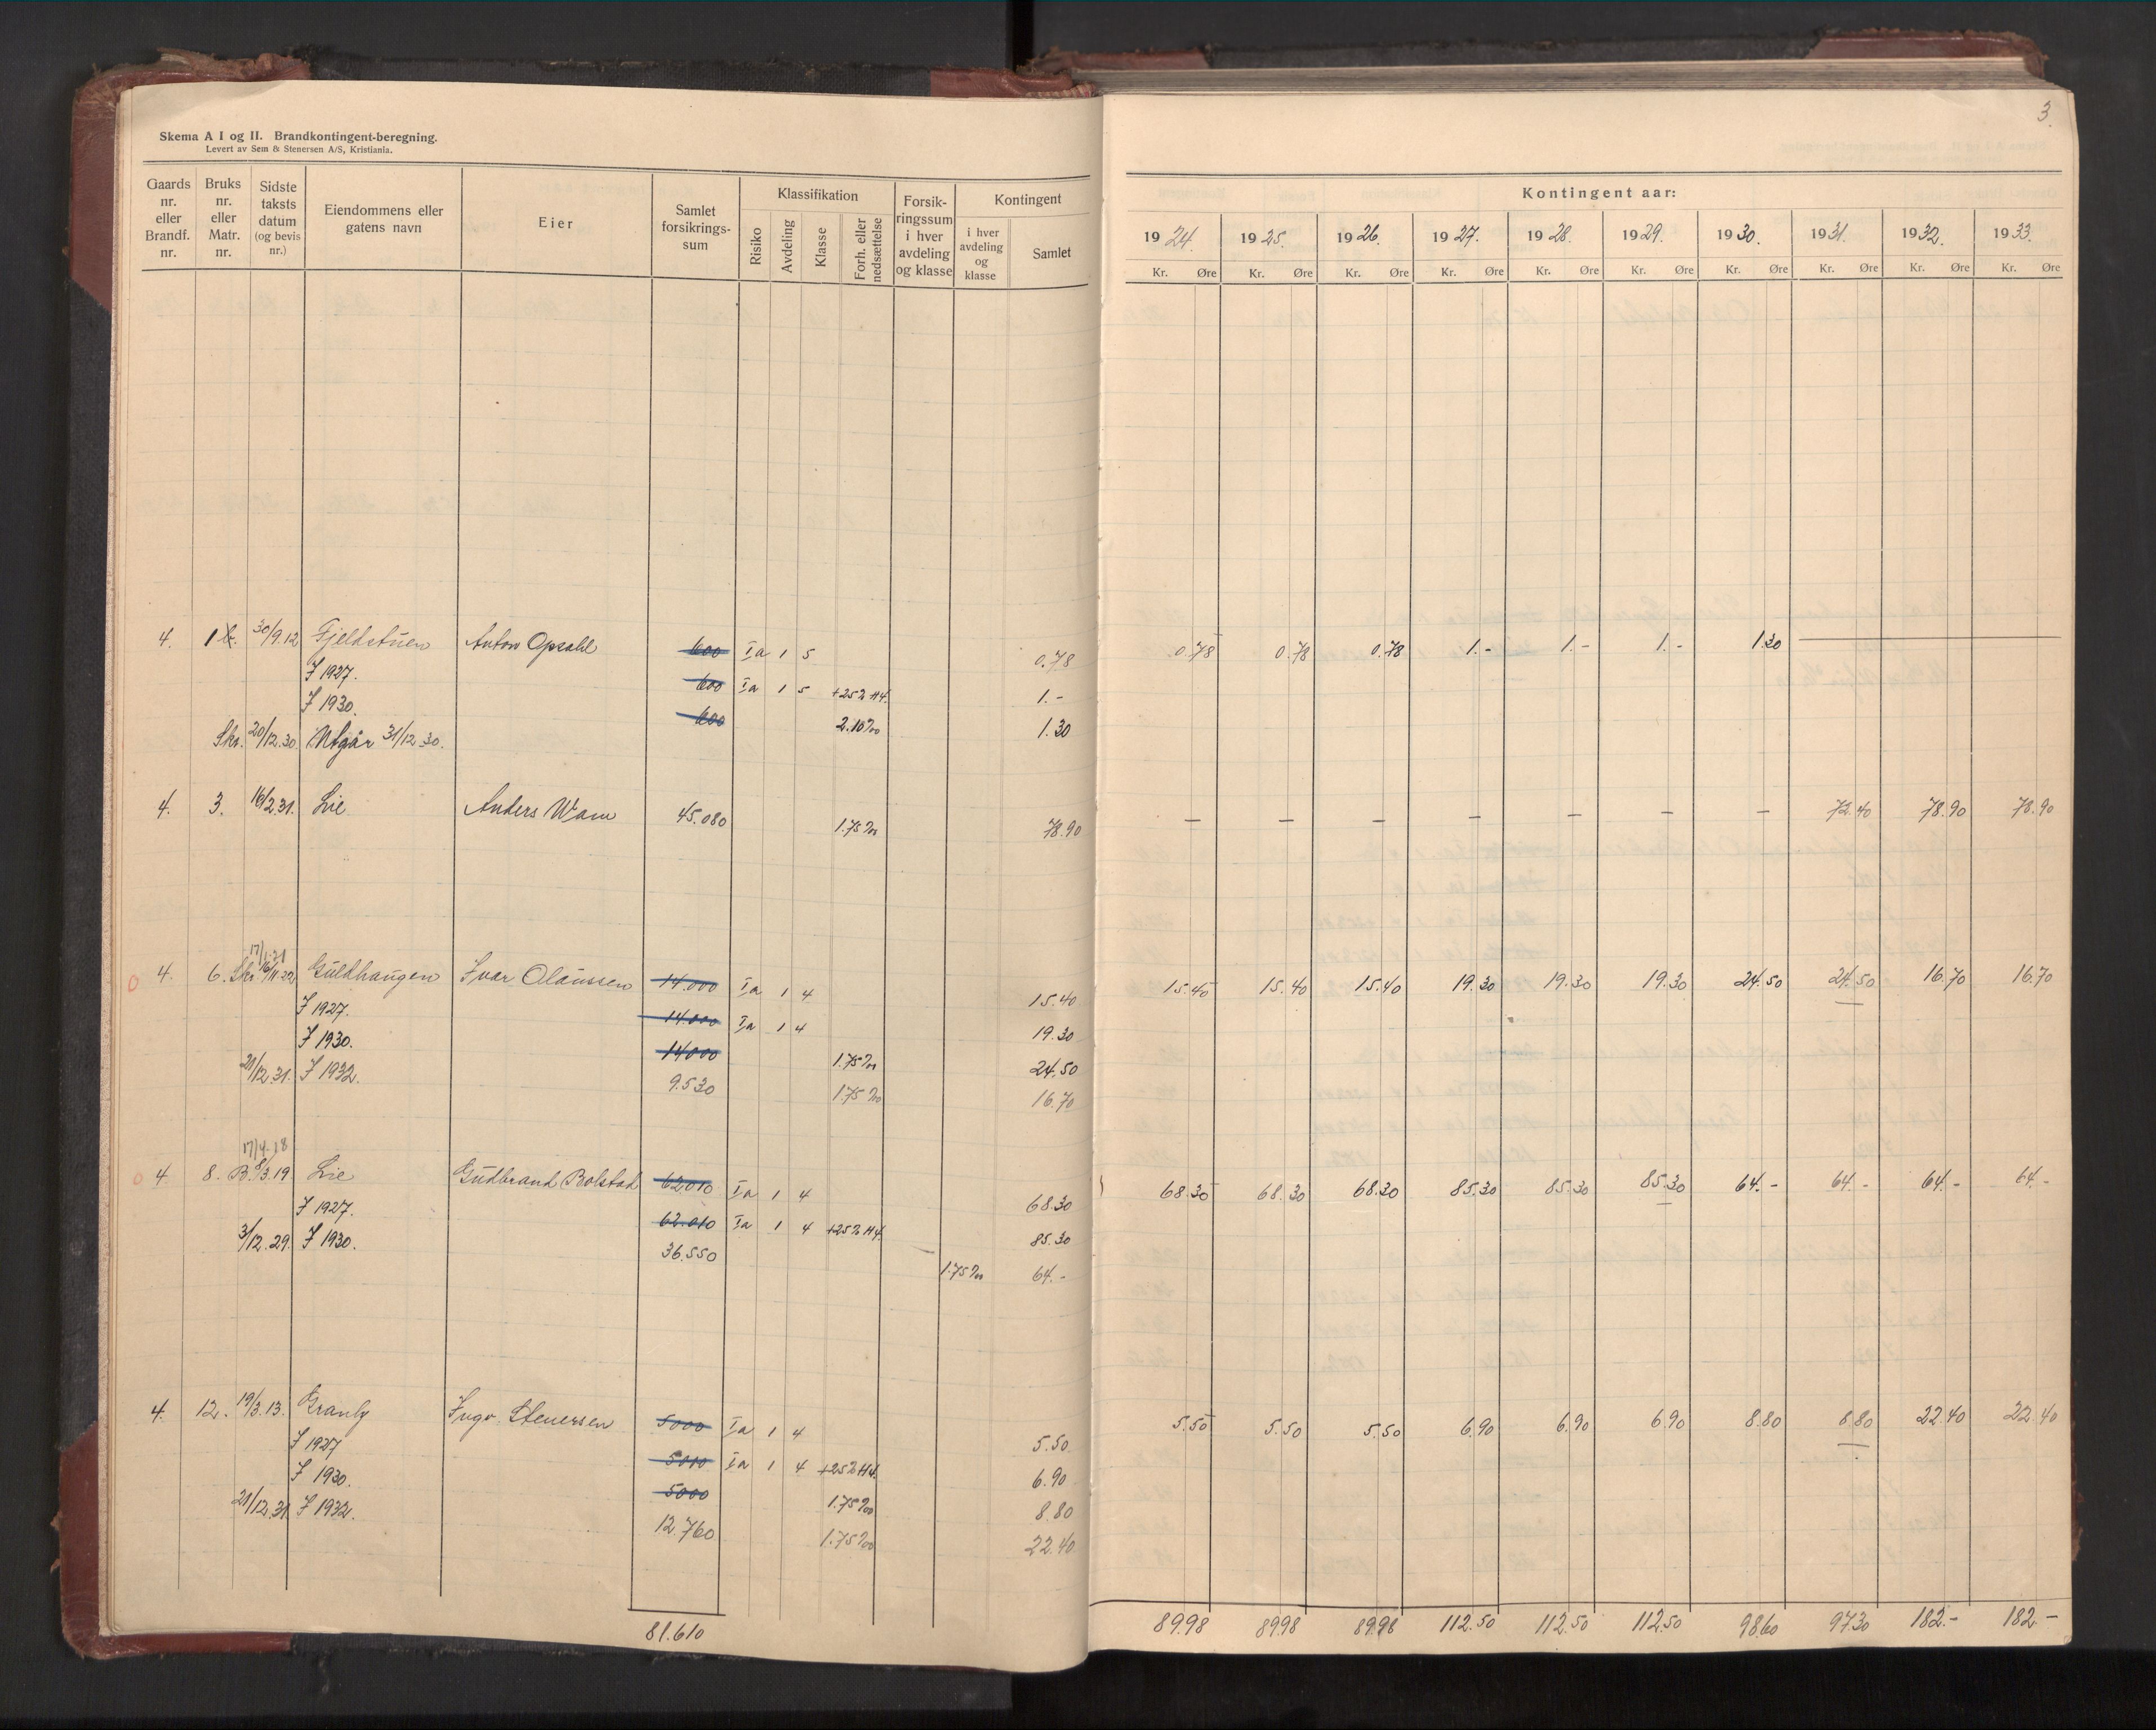 3.
Skema A I og II. Brandkontingent-beregning.
Levert av Sem & Stenersen A/S, Kristiania.
Gaards nr. eller Brandf. nr.
Bruks nr. eller Matr. nr.
Sidste taksts datum (og bevis nr.)
Eiendommens eller gatens navn
Eier
Samlet forsikrings-sum
Klassifikation
Risiko
Avdeling
Klasse
Forh. eller nedsættelse
Forsik-ringssum i hver avdeling og klasse
Kontingent
i hver avdeling og klasse
Samlet
Kontingent aar:
1924. 1925. 1926. 1927. 1928. 1929. 1930. 1931. 1932. 1933.
Kr. Øre Kr. Øre Kr. Øre Kr. Øre Kr. Øre Kr. Øre Kr. Øre Kr. Øre Kr. Øre Kr. Øre
4. 1 30/9.12 Fjeldstuen Anton Opsahl 600 Ia 1 5 0.78 0.78 0.78 0.78 1.- 1.- 1.- 1.30
F 1927. 600 Ia 1 5 +25% H4. 1.-
F 1930. 600 2.10‰ 1.30
Skr. 20/12.30. Utgår 31/12.30.
4. 3. 16/2.31. Lie Anders Wam 45.080 1.75‰ 78.90 — — — — — — — 72.40 78.90 78.90
17/1.21
4. 6. Skr. 16/11.22 Guldhaugen Ivar Olaussen 14.000 Ia 1 4 15.40 15.40 15.40 15.40 19.30 19.30 19.30 24.50 24.50 16.70 16.70
F 1927. 14.000 Ia 1 4 19.30
F 1930. 14000 1.75‰ 24.50
21/12.31. F 1932. 9.530 1.75‰ 16.70
17/4.18
4 8. B. 8/3.19 Lie Gudbrand Bolstad 62010 Ia 1 4 68.30 68.30 68.30 68.30 85.30 85.30 85.30 64.- 64.- 64.- 64.-
F 1927. 62.010 Ia 1 4 +25% H4. 85.30
3/12.29. F 1930. 36.550 1.75‰ 64.-
4. 12. 19/3.13. Granly Ingv. Stenersen 5000 Ia 1 4 5.50 5.50 5.50 5.50 6.90 6.90 6.90 8.80 8.80 22.40 22.40
F 1927 5010 Ia 1 4 +25% H4. 6.90
F 1930. 5000 1.75‰ 8.80
21/12.31. F 1932. 12.760 1.75‰ 22.40
81.610 89.98 89.98 89.98 112.50 112.50 112.50 98.60 97.30 182.- 182.-